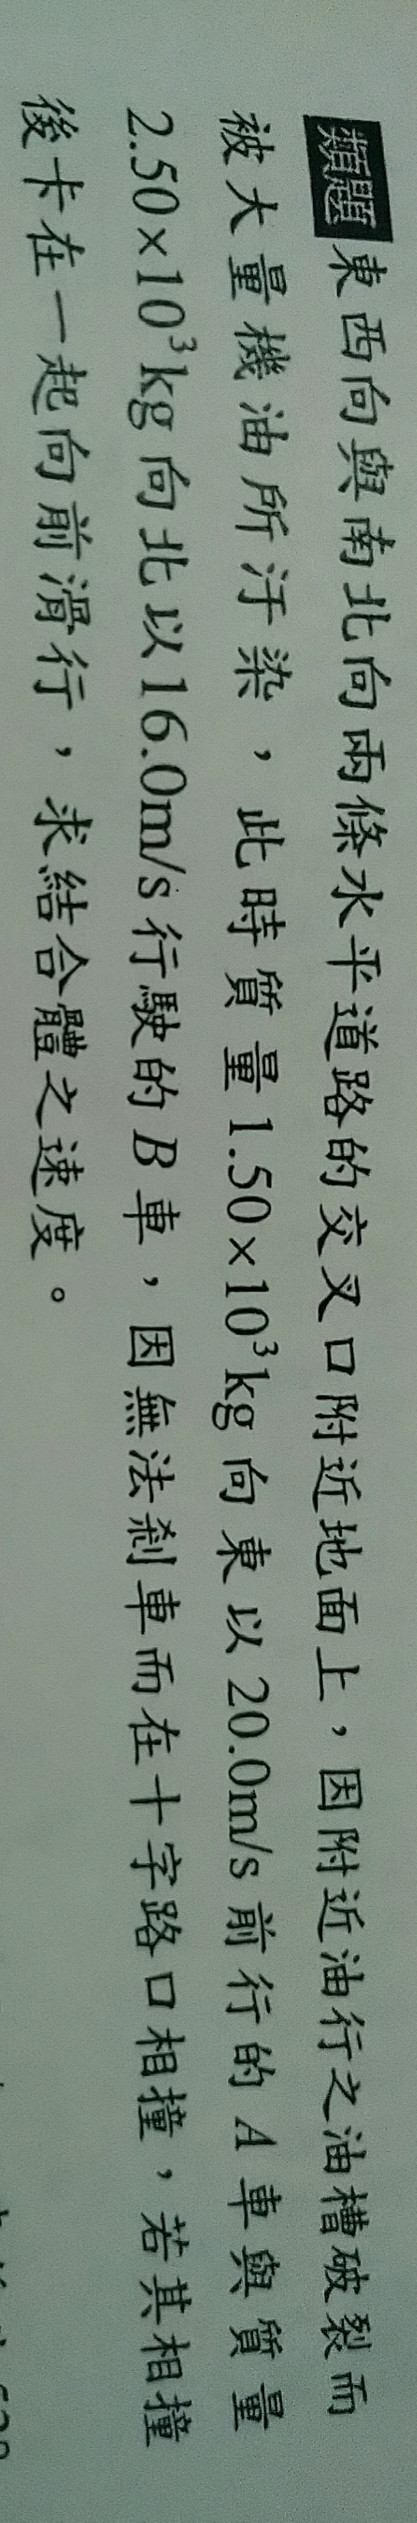 類題 東西向與南北向兩條水平道路的交叉口附近地面上，因附近油行之油槽破裂而
被大量機油所汙染，此時質量1.50×10³kg向東以20.0m/s前行的A車與質量
2.50×10³kg向北以16.0m/s行駛的B車，因無法剎車而在十字路口相撞，若其相撞
後卡在一起向前滑行，求結合體之速度。